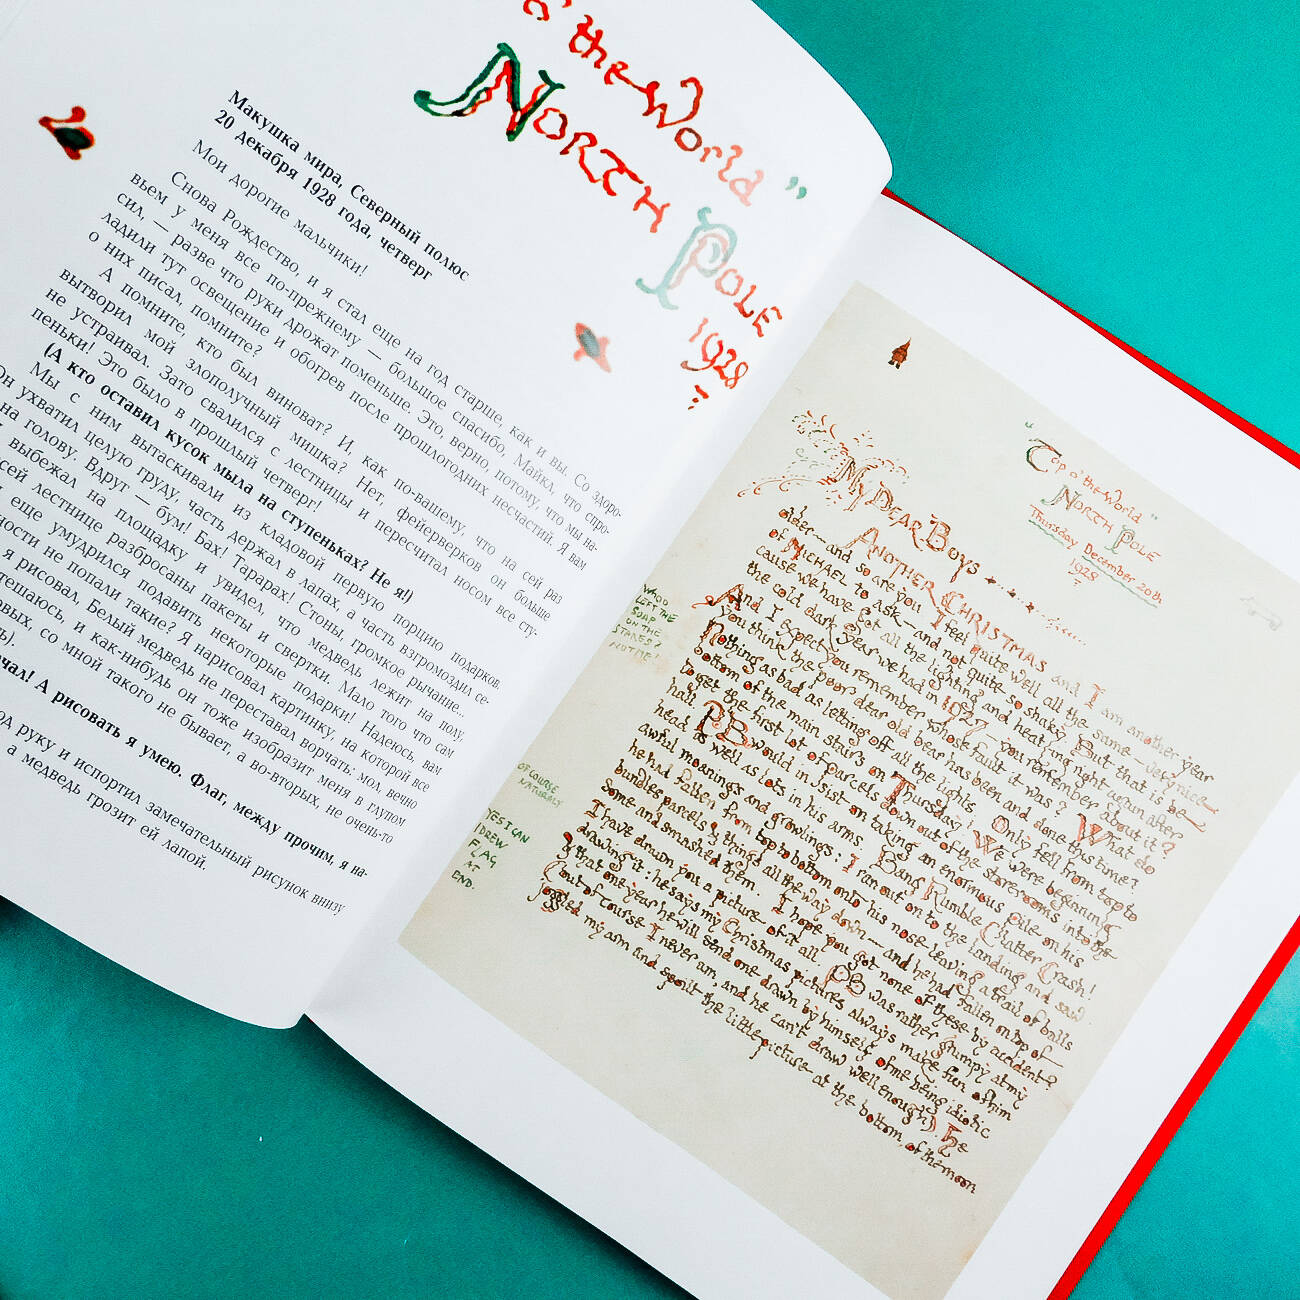 the-World"
NORTH POLE
1928
Макушка мира, Северный полюс
20 декабря 1928 года, четверг
Мои дорогие мальчики!
Снова Рождество, и я стал еще на год старше, как и вы. Со здоро-
вьем у меня все по-прежнему — большое спасибо, Майкл, что спро-
сил, — разве что руки дрожат поменьше. Это, верно, потому, что мы на-
ладили тут освещение и обогрев после прошлогодних несчастий. Я вам
о них писал, помните?
А помните, кто был виноват? И, как по-вашему, что на сей раз
вытворил мой злополучный мишка? Нет, фейерверков он больше
не устраивал. Зато свалился с лестницы и пересчитал носом все сту-
пеньки! Это было в прошлый четверг!
(А кто оставил кусок мыла на ступеньках? Не я!)
Мы с ним вытаскивали из кладовой первую порцию подарков.
Он ухватил целую груду, часть держал в лапах, а часть взгромоздил се-
на голову. Вдруг — бум! Бах! Тарарах! Стоны, громкое рычание...
выбежал на площадку и увидел, что медведь лежит на полу,
сей лестнице разбросаны пакеты и свертки. Мало того что сам
еще умудрился подавить некоторые подарки! Надеюсь, вам
ности не попали такие? Я нарисовал картинку, на которой все
я рисовал, Белый медведь не переставал ворчать: мол, вечно
тешаюсь, и как-нибудь он тоже изобразит меня в глупом
вых, со мной такого не бывает, а во-вторых, не очень-то
чал! А рисовать я умею. Флаг, между прочим, я на-
од руку и испортил замечательный рисунок внизу
а медведь грозит ей лапой.
"Top o' the-World"
NORTH POLE
Thursday December 20th
1928
MY DEAR BOYS
ANOTHER CHRISTMAS and I am another year
older—and so are you. I feel quite well all the same—very nice
of MICHAEL to ask—and not quite so shaky. But that is be-
cause we have got all the lighting and heating right again after
the cold dark year we had in 1927—you remember about it?
And I expect you remember whose fault it was? What do
you think the poor dear old bear has been and done this time?
Nothing as bad as letting off all the lights. Only fell from top to
bottom of the main stairs on Thursday! We were beginning
to get the first lot of parcels down out of the storerooms into the
hall. P.B. would insist on taking an enormous pile on his
head as well as lots in his arms. Bang Rumble Clatter Crash!
awful moanings and growlings: I ran out on to the landing and saw
he had fallen from top to bottom onto his nose leaving a trail of balls
bundles parcels & things all the way down—and he had fallen on top of
some and smashed them. I hope you got none of these by accident?
I have drawn you a picture of it all. P.B. was rather grumpy at my
drawing it: he says my Christmas pictures always make fun of him
& that one year he will send one drawn by himself of me being idiotic
(but of course I never am, and he can't draw well enough). He
joggled my arm and spoilt the little picture at the bottom, of the moon
WHO
LEFT THE
SOAP
ON THE
STAIRS?
NOT ME!
OF COURSE
NATURALY
YES I CAN
I DREW
FLAG
AT
END.